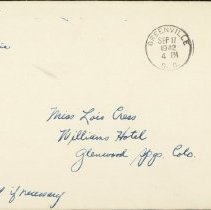 GREENVILLE
SEP 17
1942
4 PM
S. C.
Miss Lois Cress
Williams Hotel
Glenwood Spgs. Colo.
if necessary